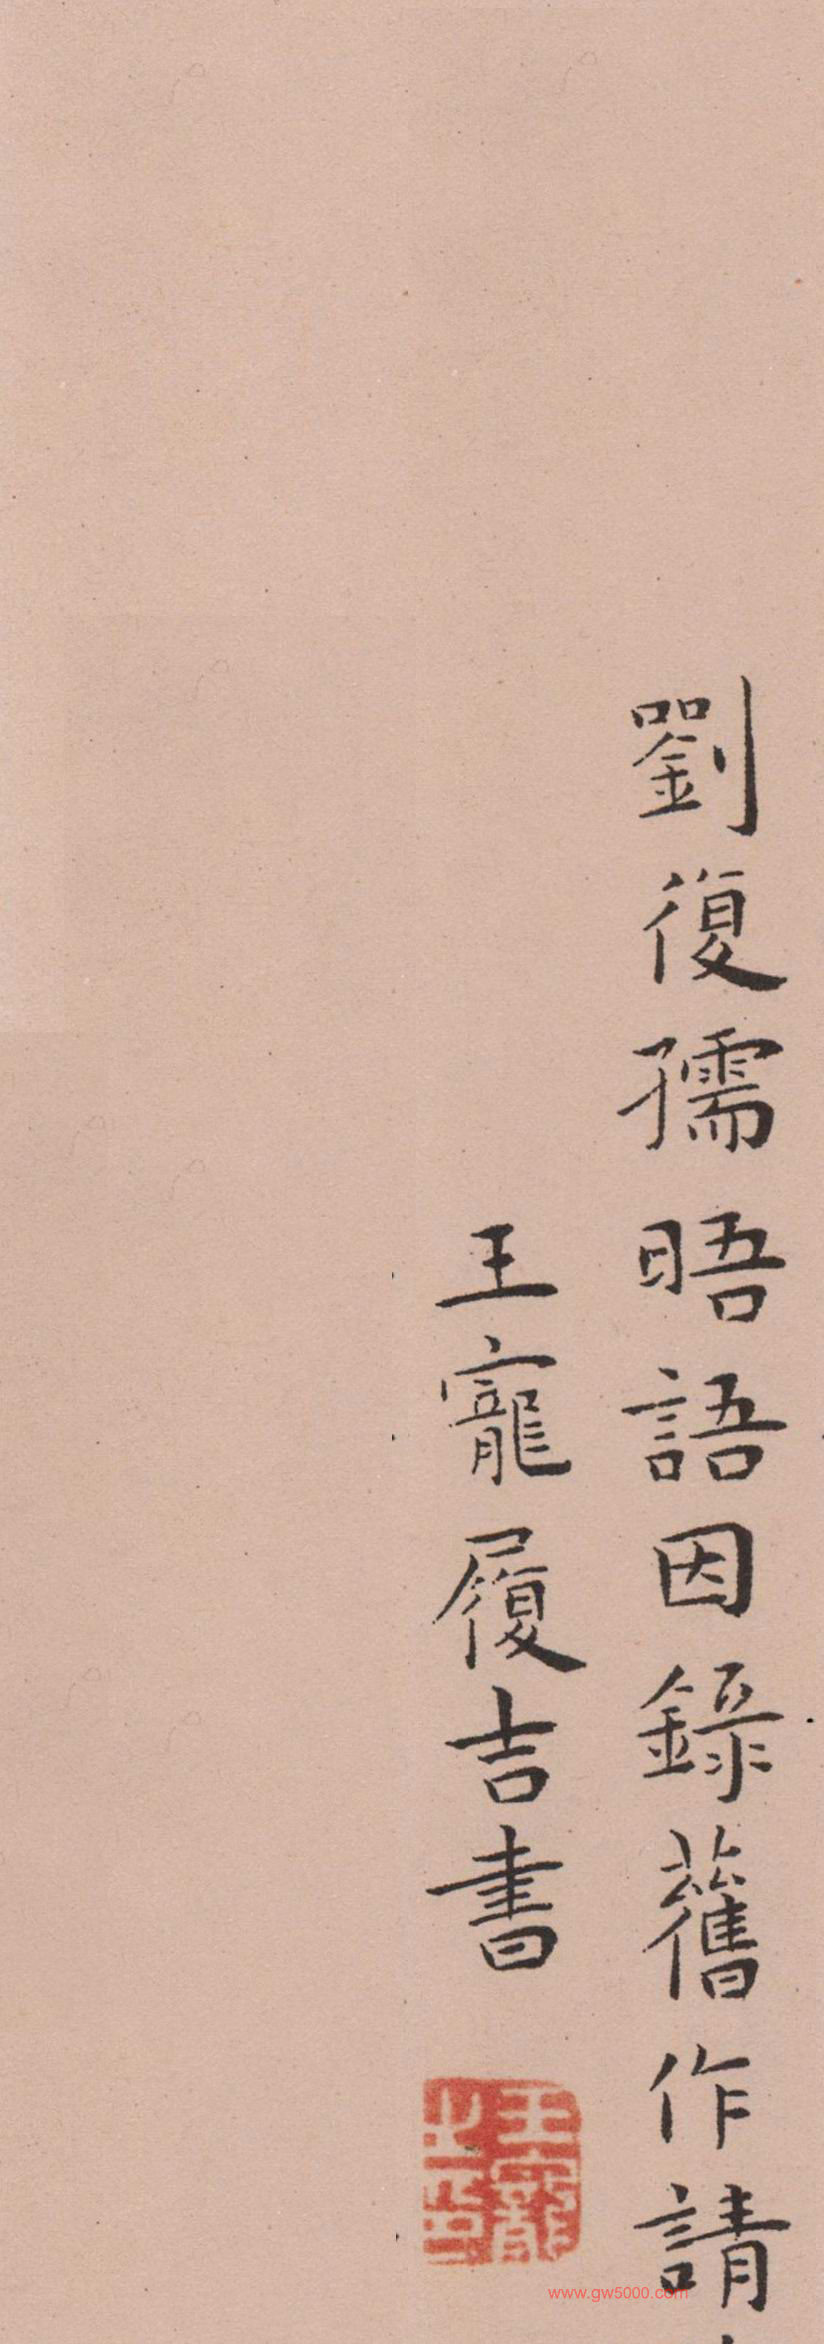 劉復孺晤語因錄舊作請
王寵履吉書
王寵之印
www.gw5000.com